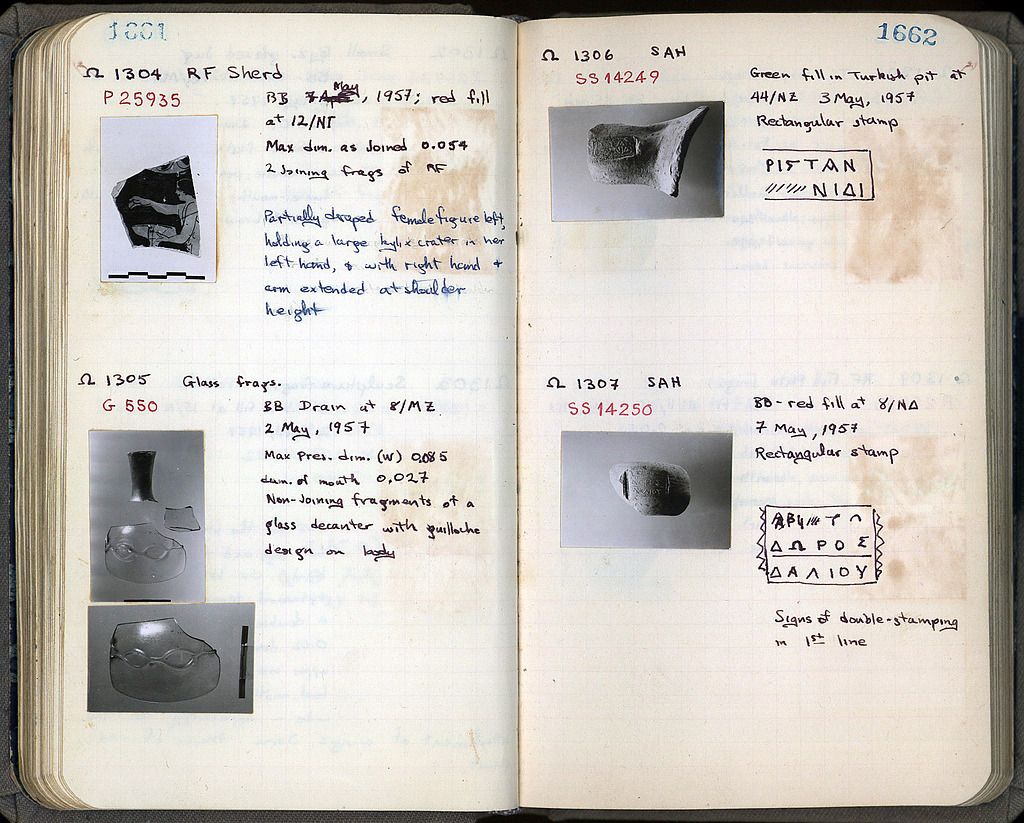 1661
Ω 1304 RF Sherd
P 25935
BB May, 1957; red fill
at 12/ΝΓ
Max dim. as Joined 0.054
2 Joining frags of RF
Partially draped female figure left,
holding a large kylix crater in her
left hand, & with right hand &
arm extended at shoulder
height
Ω 1305 Glass frags.
G 550
BB Drain at 8/ΜΖ
2 May, 1957
Max Pres. dim. (W) 0.085
diam. of mouth 0.027
Non-Joining fragments of a
glass decanter with guilloche
design on body
1662
Ω 1306 SAH
SS 14249
Green fill in Turkish pit at
44/ΝΖ 3 May, 1957
Rectangular stamp
ΡΙΣΤΑΝ
ΝΙΔΙ
Ω 1307 SAH
SS 14250
BB - red fill at 8/ΝΔ
7 May, 1957
Rectangular stamp
ΔΩΡΟΣ
ΔΑΛΙΟΥ
Signs of double-stamping
in 1st line